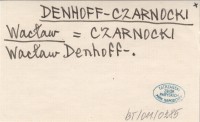 DENHOFF-CZARNOCKI
Wacław = CZARNOCKI
Wacław Denhoff-.